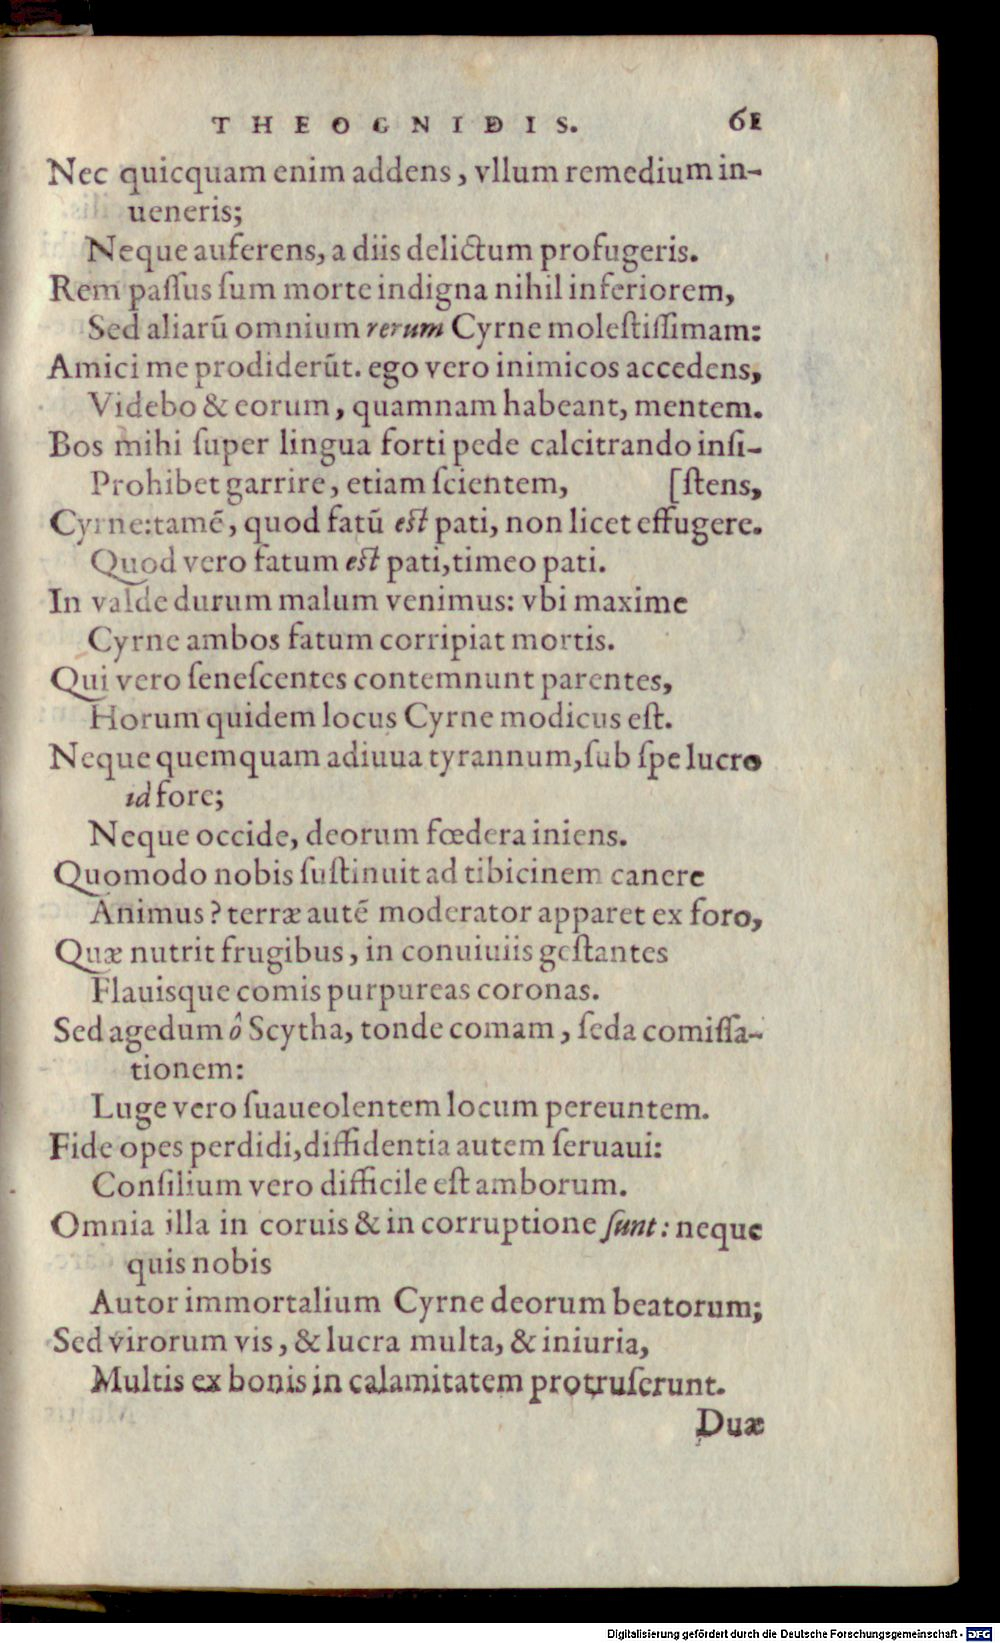 THEOGNIDIS. 61
Nec quicquam enim addens, vllum remedium in-
ueneris;
Neque auferens, a diis delictum profugeris.
Rem paſſus ſum morte indigna nihil inferiorem,
Sed aliarū omnium rerum Cyrne moleſtiſſimam:
Amici me prodiderūt. ego vero inimicos accedens,
Videbo & eorum, quamnam habeant, mentem.
Bos mihi ſuper lingua forti pede calcitrando inſi-
Prohibet garrire, etiam ſcientem, [ſtens,
Cyrne: tamē, quod fatū eſt pati, non licet effugere.
Quod vero fatum eſt pati, timeo pati.
In valde durum malum venimus: vbi maxime
Cyrne ambos fatum corripiat mortis.
Qui vero ſeneſcentes contemnunt parentes,
Horum quidem locus Cyrne modicus eſt.
Neque quemquam adiuua tyrannum, ſub ſpe lucro
id fore;
Neque occide, deorum fœdera iniens.
Quomodo nobis ſuſtinuit ad tibicinem canere
Animus? terræ autē moderator apparet ex foro,
Quæ nutrit frugibus, in conuiuiis geſtantes
Flauisque comis purpureas coronas.
Sed agedum ô Scytha, tonde comam, ſeda comiſſa-
tionem:
Luge vero ſuaueolentem locum pereuntem.
Fide opes perdidi, diffidentia autem ſeruaui:
Conſilium vero difficile eſt amborum.
Omnia illa in coruis & in corruptione ſunt: neque
quis nobis
Autor immortalium Cyrne deorum beatorum;
Sed virorum vis, & lucra multa, & iniuria,
Multis ex bonis in calamitatem protruſerunt.
Duæ
Digitalisierung gefördert durch die Deutsche Forschungsgemeinschaft - DFG